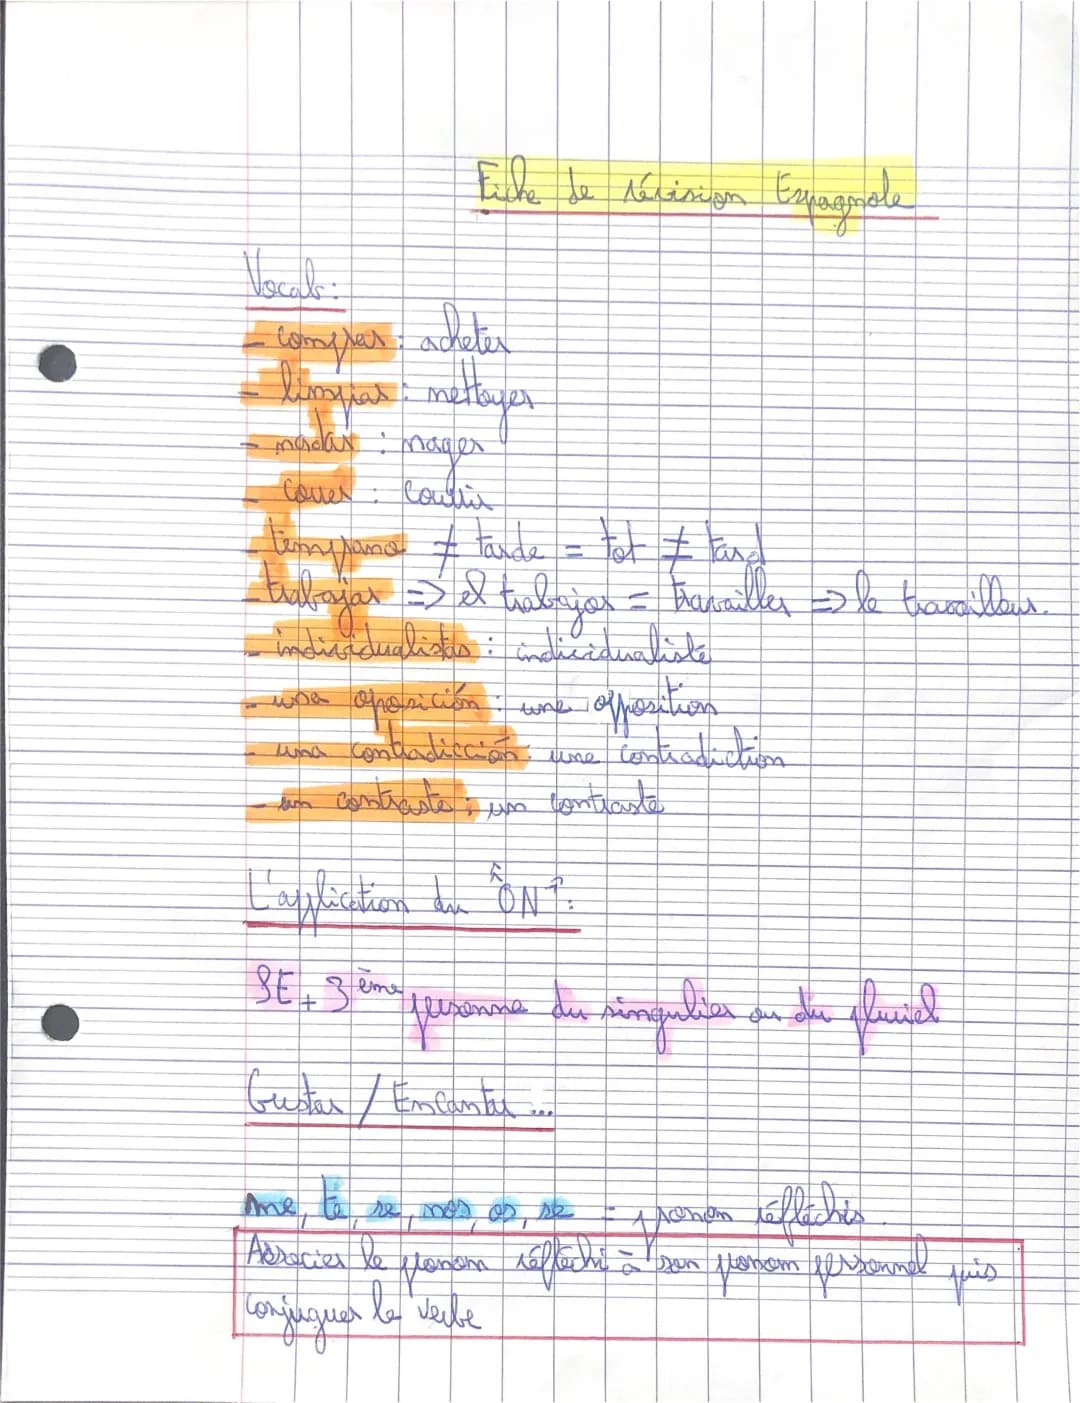 Fiche de révision Espagnole
Vocab:
- comprar : acheter
- limpiar : nettoyer
- nadar : nager
- correr : courrir
- temprano ≠ tarde = tot ≠ tard
- trabajar => el trabajor = travailler => le travailleur.
- individualistas : individualiste
- una oposición : une opposition
- una contradicción : une contradiction
- un contraste : un contraste
L'application du "ON":
SE + 3ème personne du singulier ou du pluriel
Gustar / Encantar ...
me, te, se, nos, os, se = pronom réfléchis.
Associer le pronom réfléchi à son pronom personnel puis
conjuguer le verbe